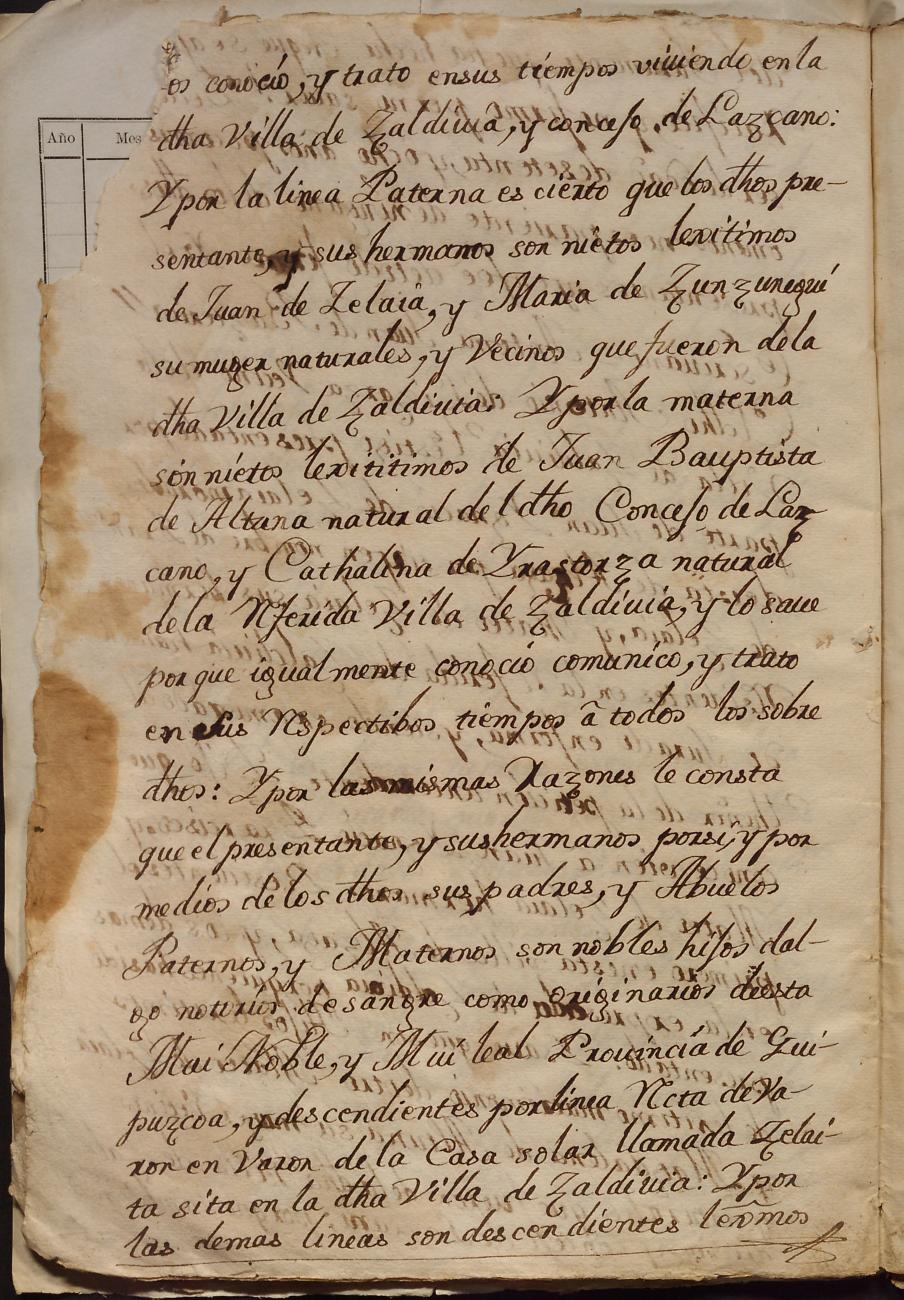 Año Mes
os conoció, y trato ensus tiempos viviendo en la
dha Villa de Zaldivia, y concejo de Lazcano:
Y por la linea Paterna es cierto que los dhos pre-
sentante, y sus hermanos son nietos lexitimos
de Juan de Zelaiâ, y Maria de Zunzunegui
su muger naturales, y Vecinos que fueron dela
dha Villa de Zaldivia: Y por la materna
son nietos lexititimos de Juan Bauptista
de Altuna natural del dho Concejo de Laz
cano, y Cathalina de Yrastorza natural
dela Rferida Villa de Zaldivia, y lo save
por que igualmente conoció comunico, y trato
en sus Rspectibos tiempos â todos los sobre
dhos: Y por las mismas Razones le consta
que el presentante, y sus hermanos porsi, y por
medios de los dhos sus padres, y Abuelos
Paternos, y Maternos son nobles hijos dal-
go notorios de sangre como originarios desta
Mui Noble, y Mui leal Provincia de Gui-
puzcoa, y descendientes por linea Rcta de Va-
ron en Varon de la Casa solar llamada Zelai-
ta sita en la dha Villa de Zaldivia: Y por
las demas lineas son descendientes